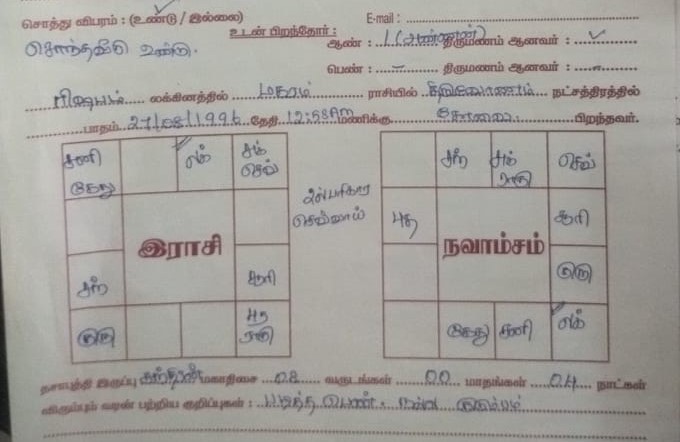 சொத்து விபரம் : (உண்டு / இல்லை) E-mail :
உடன் பிறந்தோர் :
சொந்தவீடு உண்டு. ஆண் : 1 (அண்ணன்) திருமணம் ஆனவர் :
பெண் : – திருமணம் ஆனவர் : –
ரிஷபம் லக்கினத்தில் மகரம் ராசியில் திருவோணம் நட்சத்திரத்தில்
பாதம் 27/08/1996 தேதி 12:58 Am மணிக்கு கோவை பிறந்தவர்.
சனி கேது
ல/
சுக் செவ்
இராசி
சந்
சூரி
குரு
புத ராகு
சந்
சுக் ராகு
செவ்
புத
நவாம்சம்
சூரி
குரு
கேது
சனி
ல/
செவ்வாய்
தசாபுத்தி இருப்பு சந்திரன் மகாதிசை 08 வருடங்கள் 00 மாதங்கள் 04 நாட்கள்
விரும்பும் வரன் பற்றிய குறிப்புகள் : படித்த பெண், நல்ல குடும்பம்